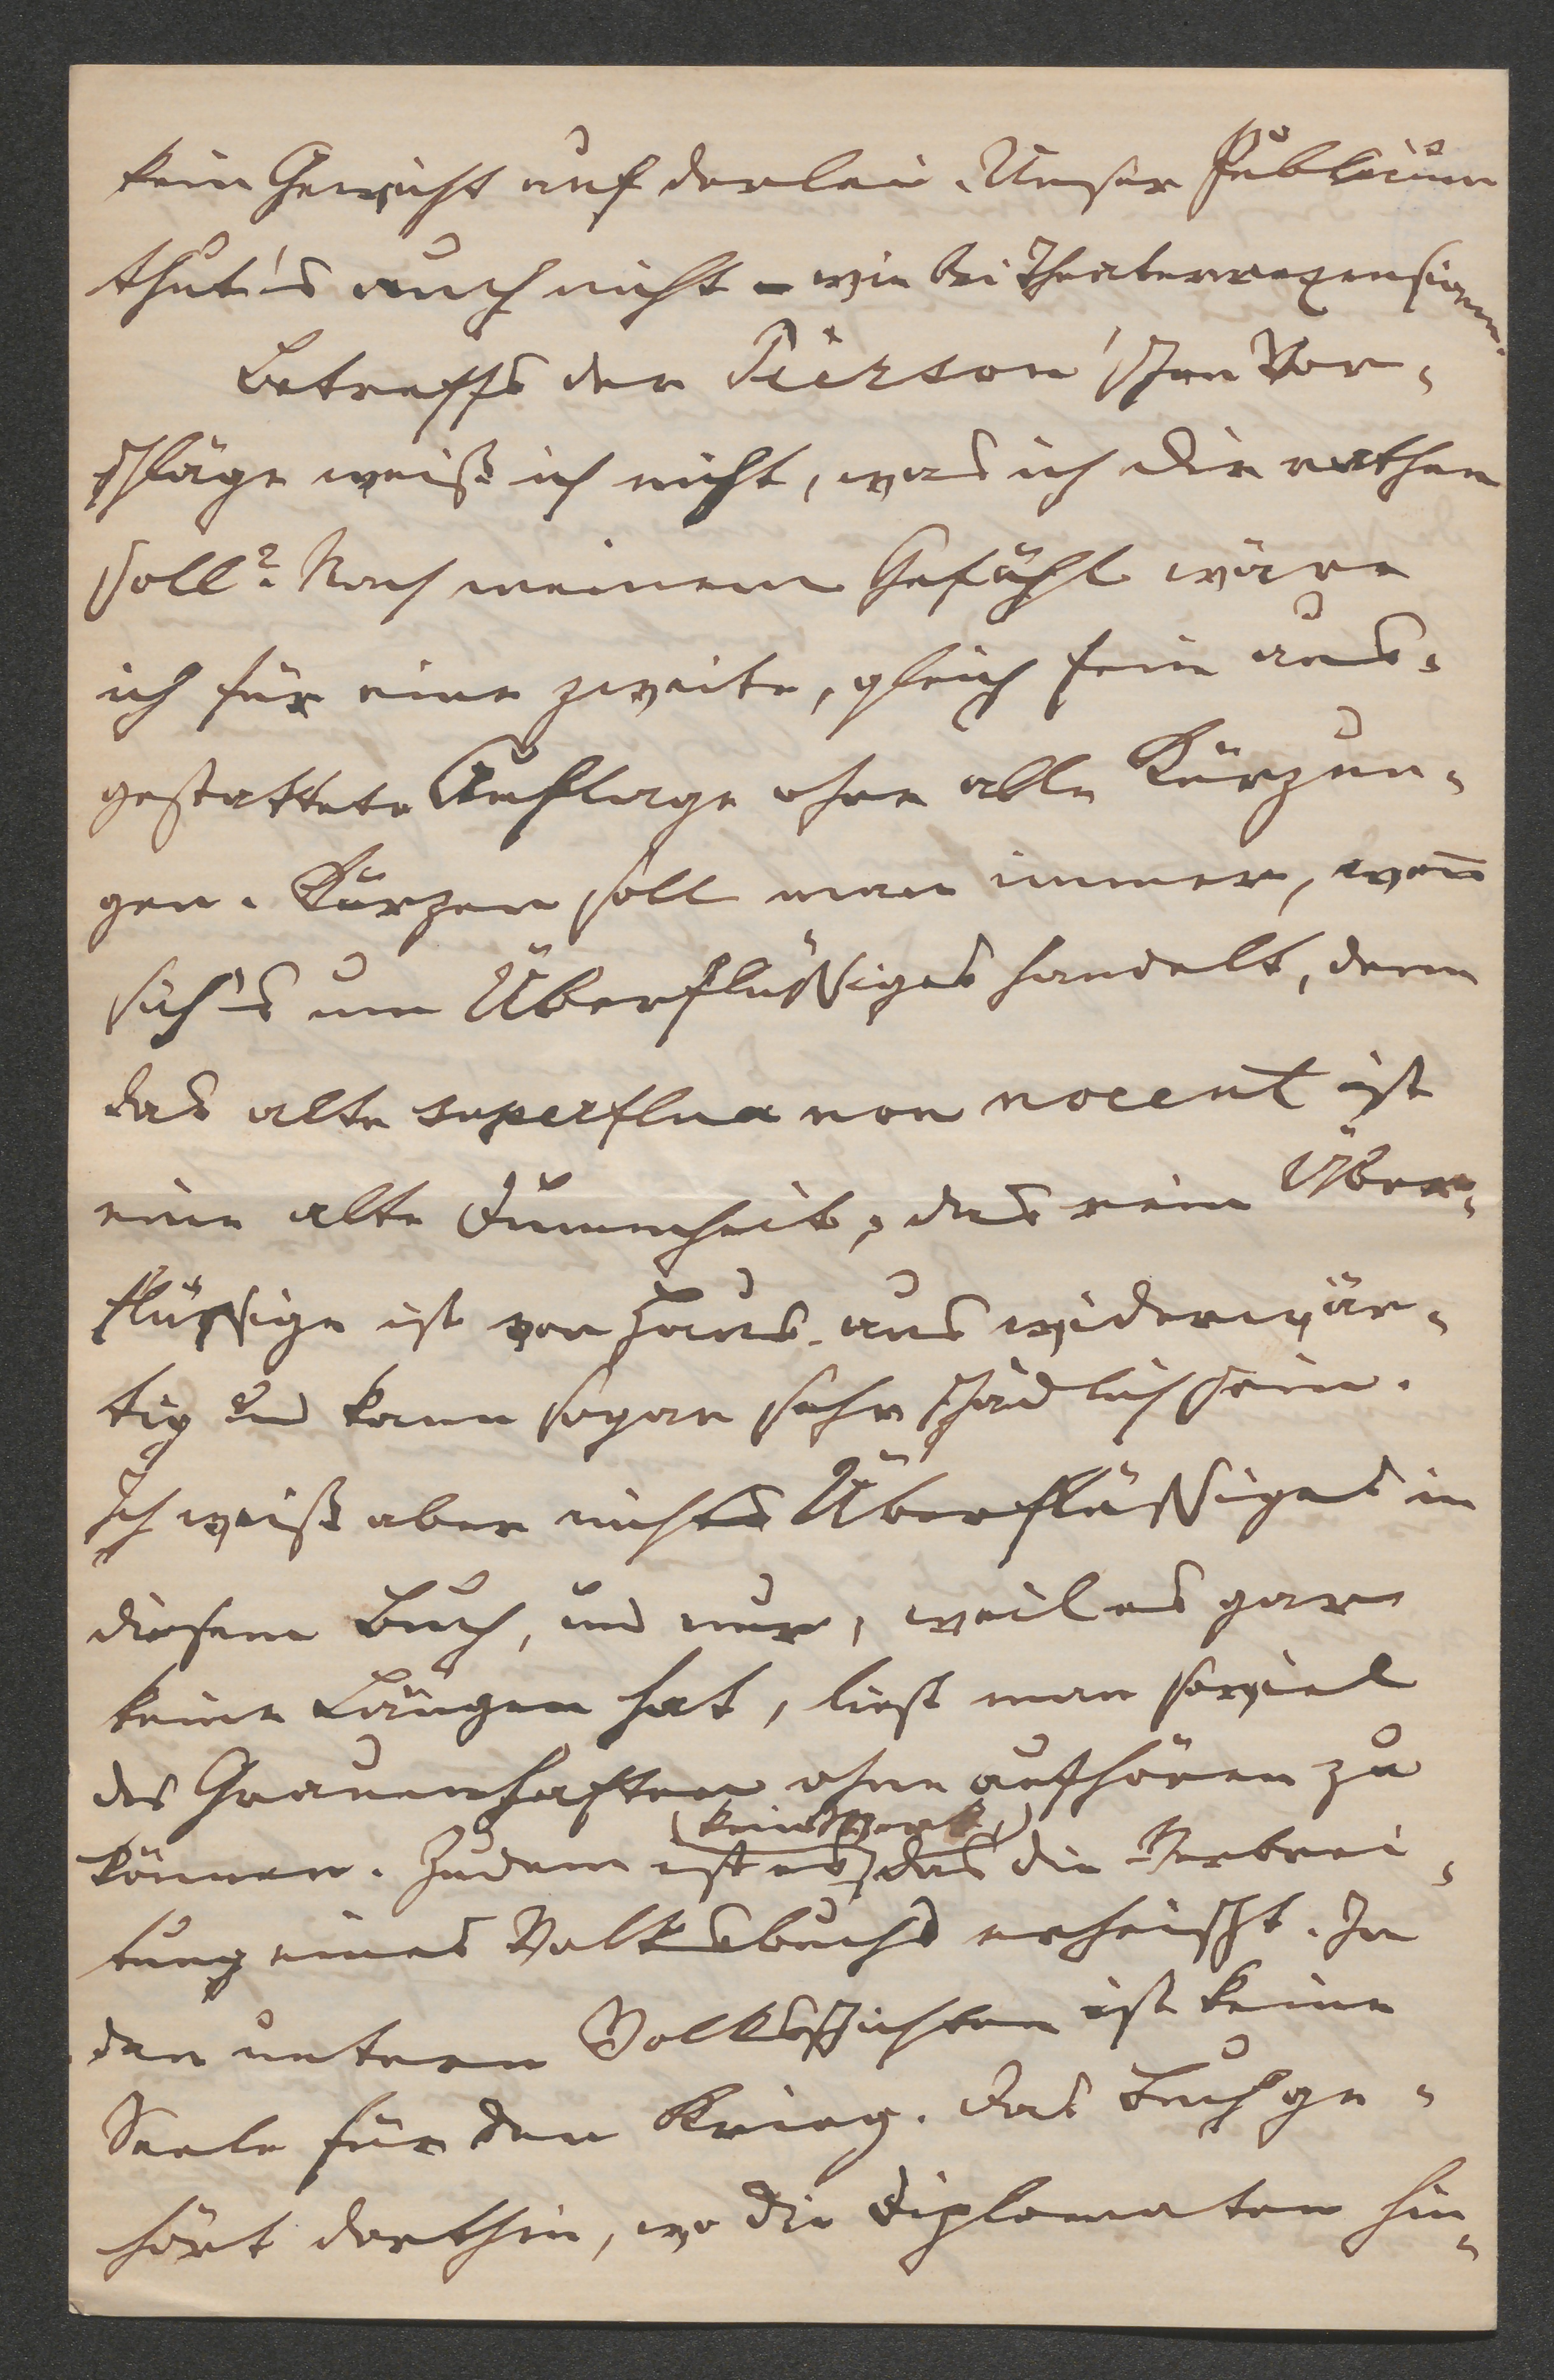 kein Gewicht auf derlei. Unser Publikum
thut's auch nicht – wie bei Theaterrezensionen.
Betreffs der Pierson'schen Vor-
schläge weiß ich nicht, was ich Dir rathen
soll? Nach meinem Gefühl wäre
ich für eine zweite, gleich fein aus-
gestattete Auflage ohne alle Kürzun-
gen. Kürzen soll man immer, weñ
sich's um Überflüssiges handelt, denn
das alte superflua non nocent ist
eine alte Dummheit; das rein Über-
flüssige ist von Haus aus widerwär-
tig und kann sogar sehr schädlich sein.
Ich weiß aber nichts Überflüssiges in
diesem Buch, und nur, weil es gar
keine Längen hat, liest man soviel
des Grauenhaften ohne aufhören zu
(kein Werk,)
können. Zudem ist es das die Verbrei-
tung eines Volksbuchs erheischt. In
den untern Volksschichten ist keine
Seele für den Krieg. Das Buch ge-
hört dorthin, wo die Diplomaten hin-